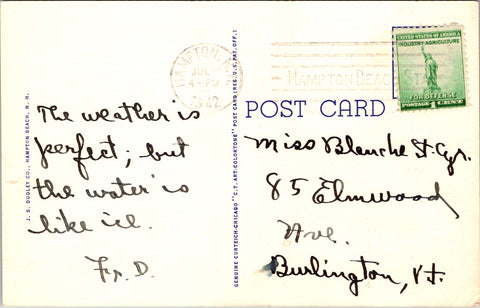 HAMPTON, N.
JUL
4-PM
1942
HAMPTON BEACH STATE
INDUSTRY-AGRICULTURE
FOR DEFENSE
POSTAGE 1 CENT
POST CARD
The weather is
perfect; but
the water is
like ice.
Fr. D.
Miss Blanche St. Cyr.
85 Elmwood
Ave.
Burlington, Vt.
J. S. DUDLEY CO., HAMPTON BEACH, N. H.
GENUINE CURTEICH-CHICAGO "C.T. ART-COLORTONE" POST CARD (REG. U.S. PAT. OFF.)